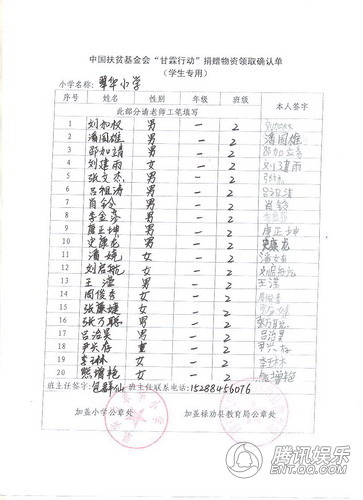 中国扶贫基金会“甘霖行动”捐赠物资领取确认单
(学生专用)
小学名称: 翠华小学
序号 姓名 性别 年级 班级 本人签字
此部分请老师工笔填写
1 刘加权 男 一 2
2 潘国雄 男 一 2 潘国雄
3 邵加靖 男 一 2
4 刘建雨 女 一 2 刘建雨
5 张文杰 男 一 2
6 吕祖涛 男 一 2
7 肖铃 男 一 2 肖铃
8 李金彦 男 一 2
9 唐正坤 男 一 2 唐正坤
10 史康龙 男 一 2 史康龙
11 潘婷 女 一 2
12 刘启航 女 一 2
13 王滢 男 一 2 王滢
14 周俊杏 女 一 2
15 张藤婕 女 一 2
16 张万聪 男 一 2
17 吕治昊 男 一 2 吕治昊
18 尹兴存 一 2
19 李琳 女 一 2
20 熊增艳 女 一 2 熊增艳
班主任签字: 包群仙 班主任联系电话: 15288456076
加盖小学公章处 加盖禄劝县教育局公章处
腾讯娱乐
ENT.QQ.COM